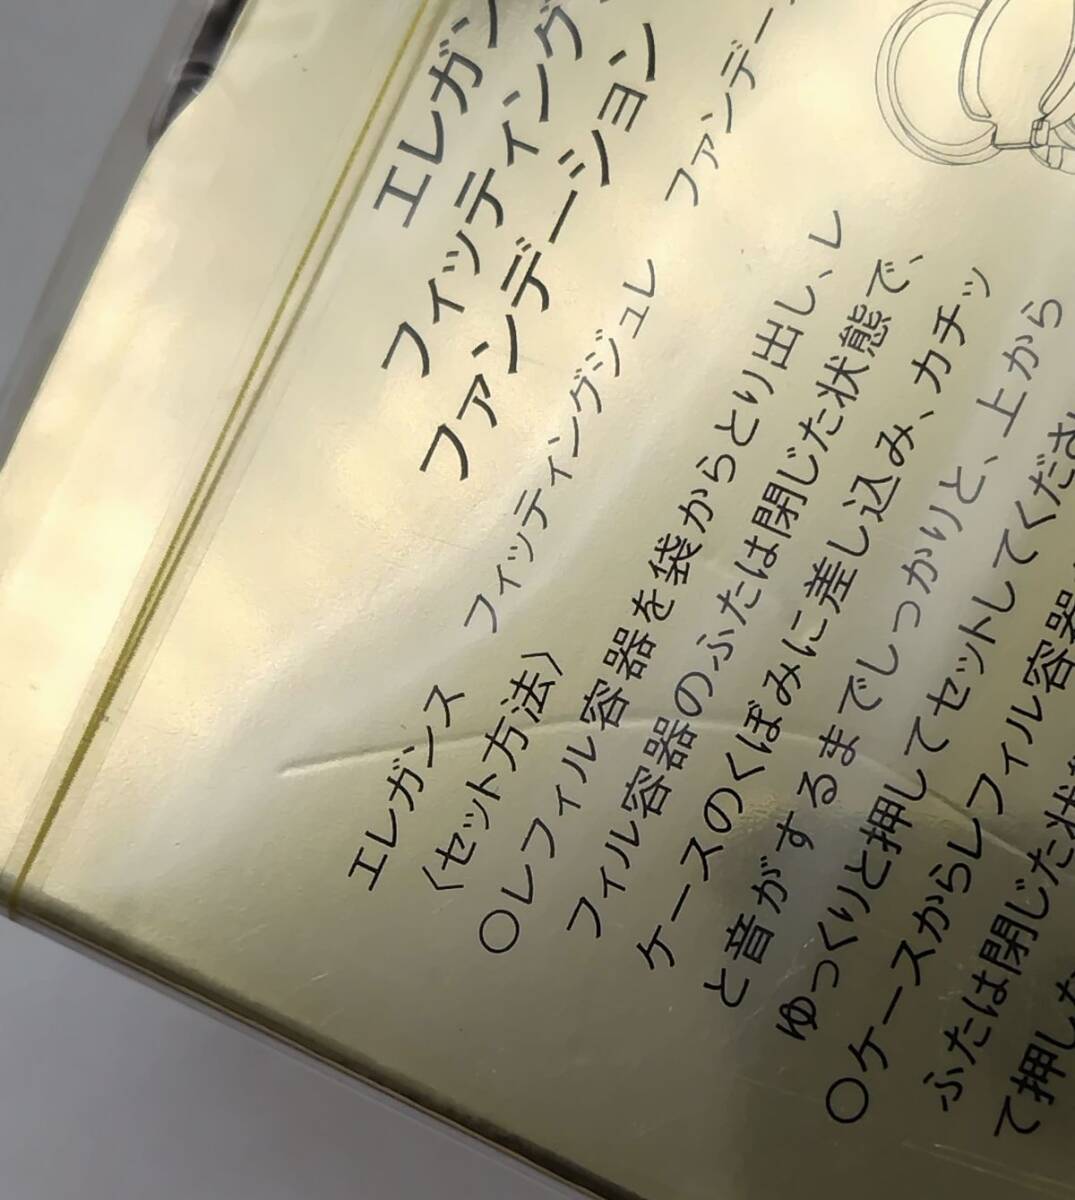 エレガン
フィッティング
ファンデーション
エレガンス フィッティングジュレ ファンデー
〈セット方法〉
○レフィル容器を袋からとり出し、レ
フィル容器のふたは閉じた状態で、
ケースのくぼみに差し込み、カチッ
と音がするまでしっかりと、上から
ゆっくりと押してセットしてくださ
○ケースからレフィル容器
ふたは閉じた状
て押し